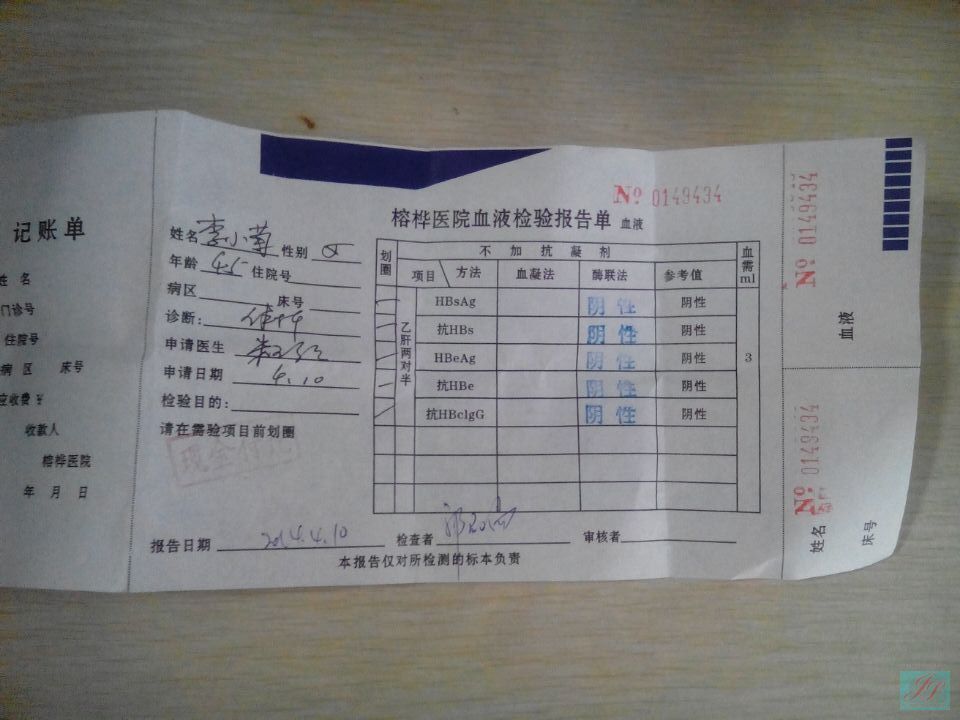 记账单
姓 名
门诊号
住院号
病 区 床号
应收费 ¥
收款人
榕桦医院
年 月 日
№ 0149434
榕桦医院血液检验报告单 血液
姓名 李小菊 性别 女
年龄 45 住院号
病区 床号
诊断:
申请医生
申请日期 4.10
检验目的:
请在需验项目前划圈
现金付讫
划圈 不加抗凝剂 血需ml
项目 方法 血凝法 酶联法 参考值
乙肝两对半
HBsAg 阴性 阴性
抗HBs 阴性 阴性
HBeAg 阴性 阴性 3
抗HBe 阴性 阴性
抗HBclgG 阴性 阴性
报告日期 2014.4.10 检查者 审核者
本报告仅对所检测的标本负责
№ 0149434
血液
№ 0149434
姓名
床号